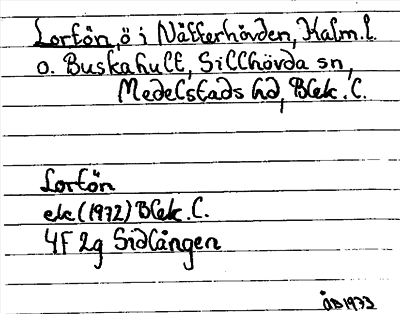 Lortön, ö i Nätterhövden, Kalm.l.
o. Buskahult, Sillhövda sn,
Medelstads hd, Blek.l.
Lortön
ek (1972) Blek.l.
4F 2g Sidlången
ÅD 1973